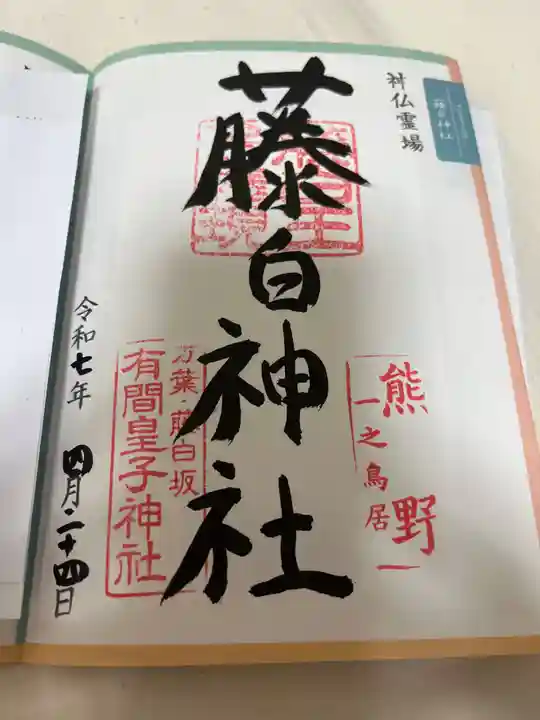 神仏霊場
藤白神社
熊野
一之鳥居
万葉・藤白坂
有間皇子神社
令和七年 四月二十四日